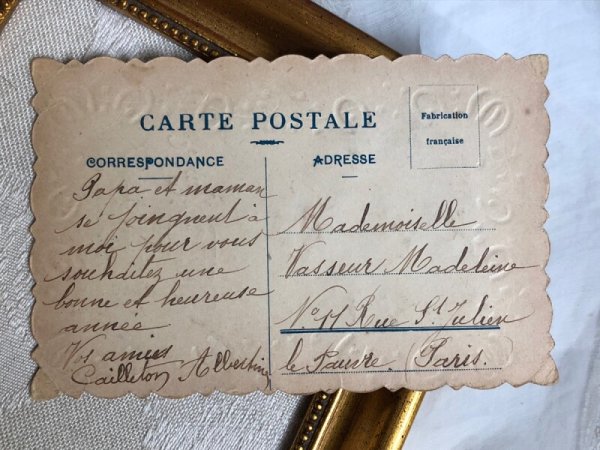 CARTE POSTALE
Fabrication
française
CORRESPONDANCE
Papa et maman
se joingnent à
moi pour vous
souhaitez une
bonne et heureuse
année
Vos amies
Cailleton Albertine
ADRESSE
Mademoiselle
Vasseur Madeleine
N° 11 Rue St Julien
le Pauvre (Paris.)